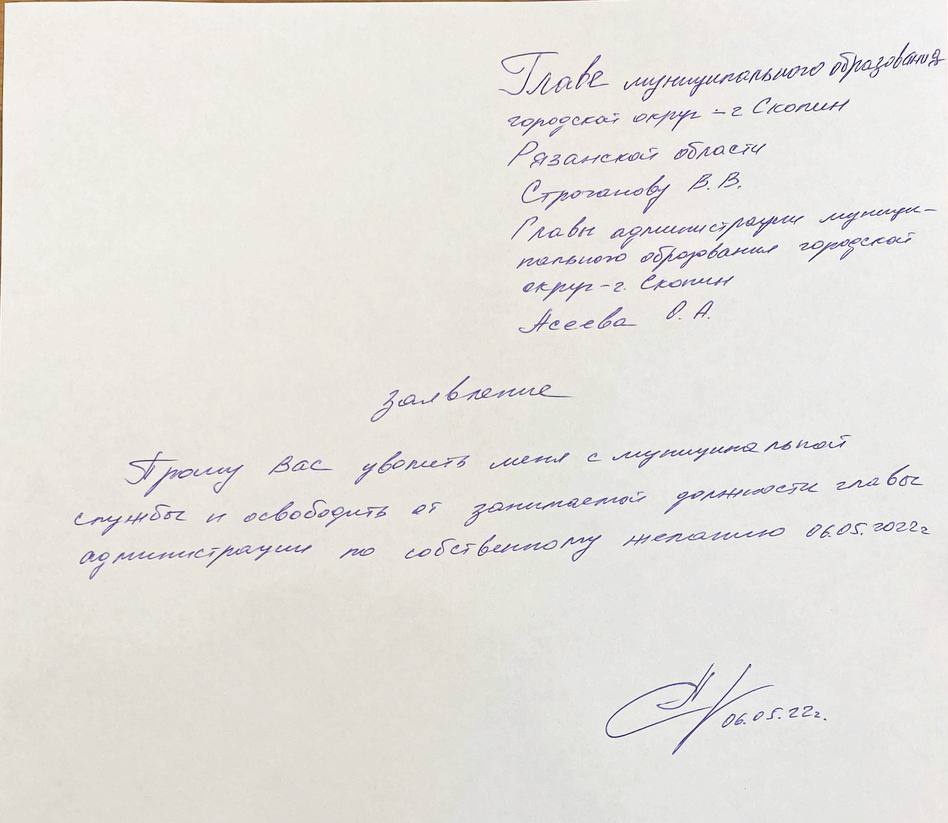 Главе муниципального образования
городской округ – г Скопин
Рязанской области
Строганову В. В.
Главы администрации муници-
пального образования городской
округ – г. Скопин
Асеева О. А.
заявление
Прошу Вас уволить меня с муниципальной
службы и освободить от занимаемой должности главы
администрации по собственному желанию 06.05.2022г
06.05.22г.